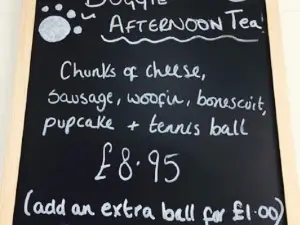 DOGGIE
AFTERNOON Tea
Chunks of cheese,
sausage, woofin, bonescuit,
pupcake + tennis ball
£8.95
(add an extra ball for £1.00)